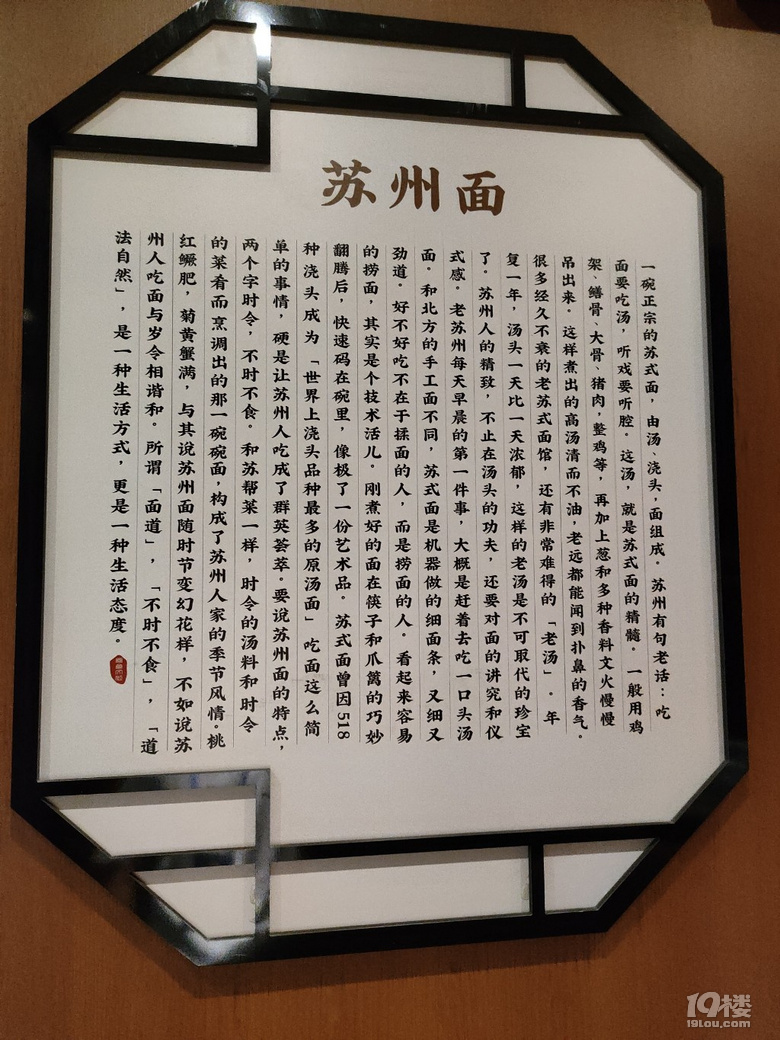 苏州面
一碗正宗的苏式面，由汤、浇头，面组成。苏州有句老话：吃
面要吃汤，听戏要听腔。这汤，就是苏式面的精髓。一般用鸡
架、鳝骨、大骨、猪肉，整鸡等，再加上葱和多种香料文火慢慢
吊出来。这样煮出的高汤清而不油，老远都能闻到扑鼻的香气。
很多经久不衰的老苏式面馆，还有非常难得的「老汤」。年
复一年，汤头一天比一天浓郁，这样的老汤是不可取代的珍宝
了。苏州人的精致，不止在汤头的功夫，还要对面的讲究和仪
式感。老苏州每天早晨的第一件事，大概是赶着去吃一口头汤
面。和北方的手工面不同，苏式面是机器做的细面条，又细又
劲道。好不好吃不在于揉面的人，而是捞面的人。看起来容易
的捞面，其实是个技术活儿。刚煮好的面在筷子和爪篱的巧妙
翻腾后，快速码在碗里，像极了一份艺术品。苏式面曾因518
种浇头成为「世界上浇头品种最多的原汤面」吃面这么简
单的事情，硬是让苏州人吃成了群英荟萃。要说苏州面的特点，
两个字时令，不时不食。和苏帮菜一样，时令的汤料和时令
的菜肴而烹调出的那一碗碗面，构成了苏州人家的季节风情。桃
红鳜肥，菊黄蟹满，与其说苏州面随时节变幻花样，不如说苏
州人吃面与岁令相谐和。所谓「面道」，「不时不食」，「道
法自然」，是一种生活方式，更是一种生活态度。
19楼
19lou.com